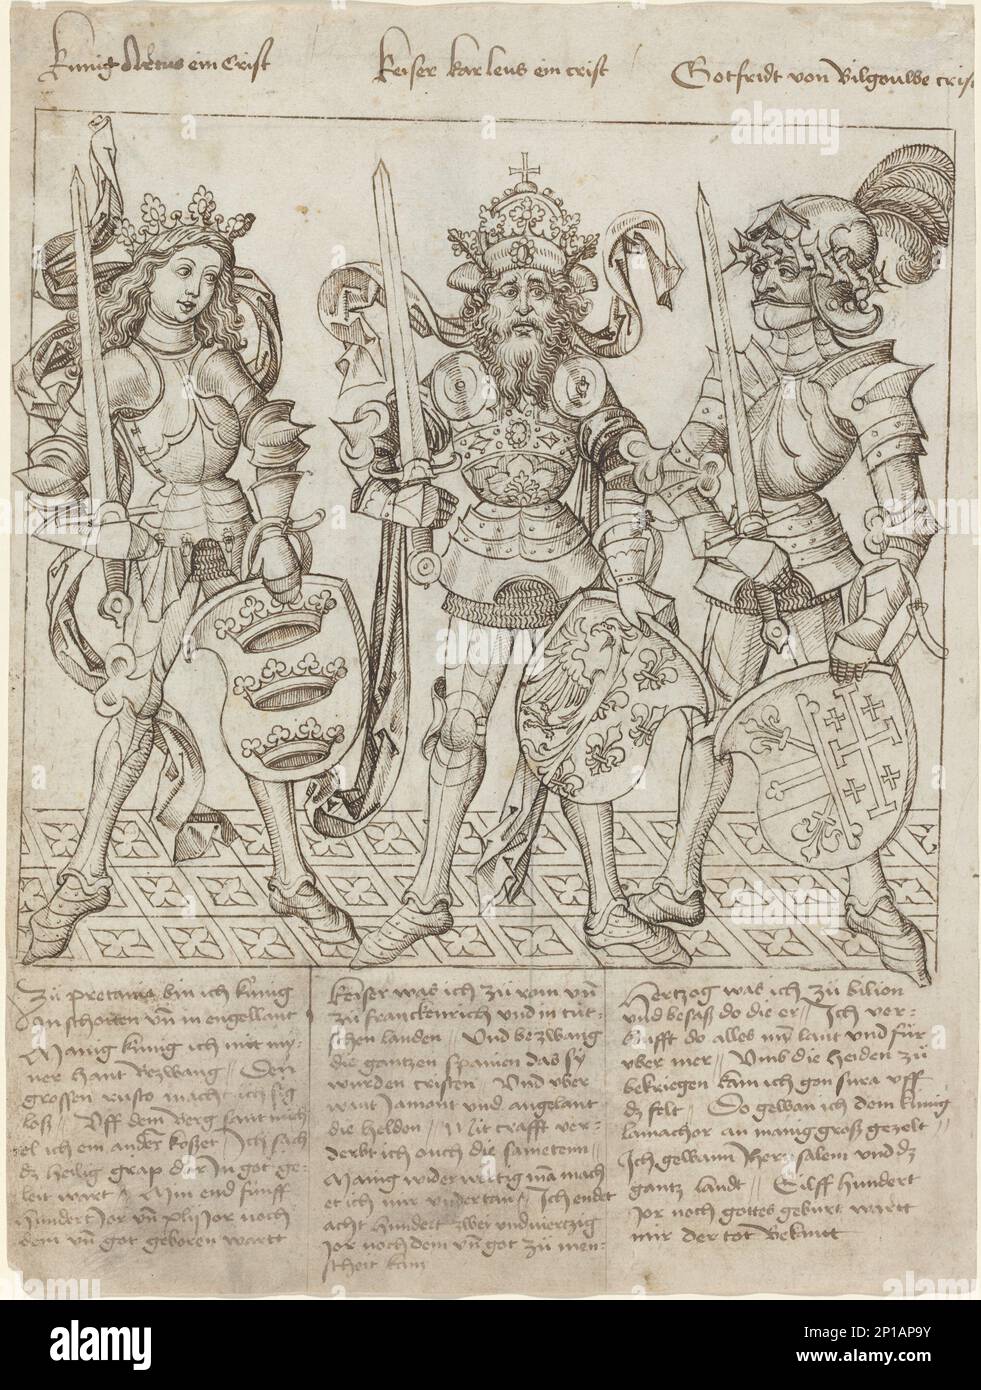 Künig Artus ein Crist
Keiser karleus ein crist
Gotfridt von Bilgouwe crist
Zü pretania bin ich künig
an schotten vñ in engellant
Manig künig ich mit my=
ner hant Bezwang // Den
grossen rusto macht ich sig
loß // Uff dem Berg sant mich=
el ich ein ander koßet // Ich sach
dz heilig grap dar in got ge=
leit wart // Min end fünff
hundert Jor vñ xlij Jor noch
dem vñ got geboren wartt
Keiser was ich zü rom vñ
zü franckenrich und in tüt=
schen landen // Und bezwang
die gantzen spanien das sy
wurden cristen // Und uber
want Jamont und angelant
die helden // Mit crafft ver=
derbt ich ouch die sametenn //
Manig widerwertig mã mach
et ich mir undertan // Ich endet
acht hundert zwei und viertzig
Jor noch dem vñ got zü men=
scheit kam
Hertzog was ich zü bilion
und besaß do die er // Ich ver=
kufft do alles mÿ lant und für
uber mer // Umb die heiden zü
bekriegen kam ich gon sura uff
dz felt // Do gewan ich dem künig
lamachor an manig groß gezelt //
Ich gewann Jherusalem und dz
gantz landt // Eilff hundert
Jor noch gottes geburt wartt
mir der tot Bekant
alamy
alamy
Image ID: 2P1AP9Y
www.alamy.com